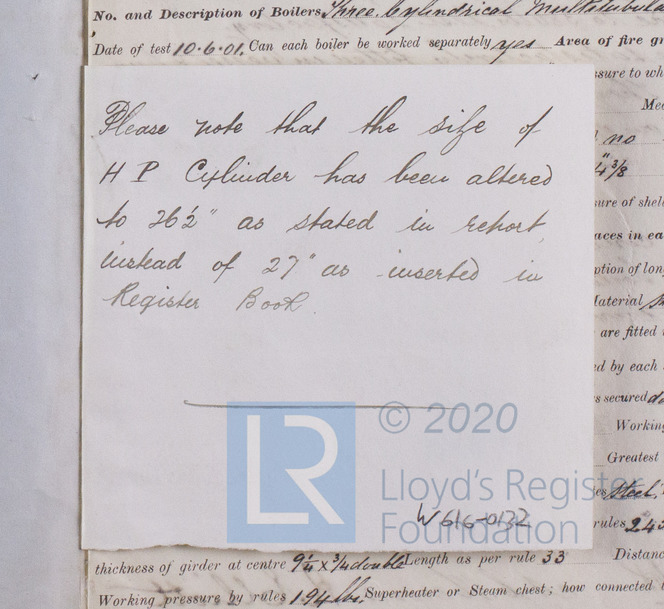 No. and Description of Boilers Three Cylindrical Multitubula
Date of test 10.6.01. Can each boiler be worked separately yes Area of fire gr
ssure to wh
Mec
no
4 3/8
Please note that the size of
H P Cylinder has been altered
to 26½" as stated in report,
instead of 27" as inserted in
Register Book.
sure of shel
aces in ea
ption of lon
Material
are fitted
ed by each
s secured do
Working
Greatest
es Steel
rules 24
© 2020
LR
Lloyd's Register
Foundation
W616-0132
thickness of girder at centre 9¼ x ¾ double Length as per rule 33 Distanc
Working pressure by rules 194 lbs. Superheater or Steam chest; how connected